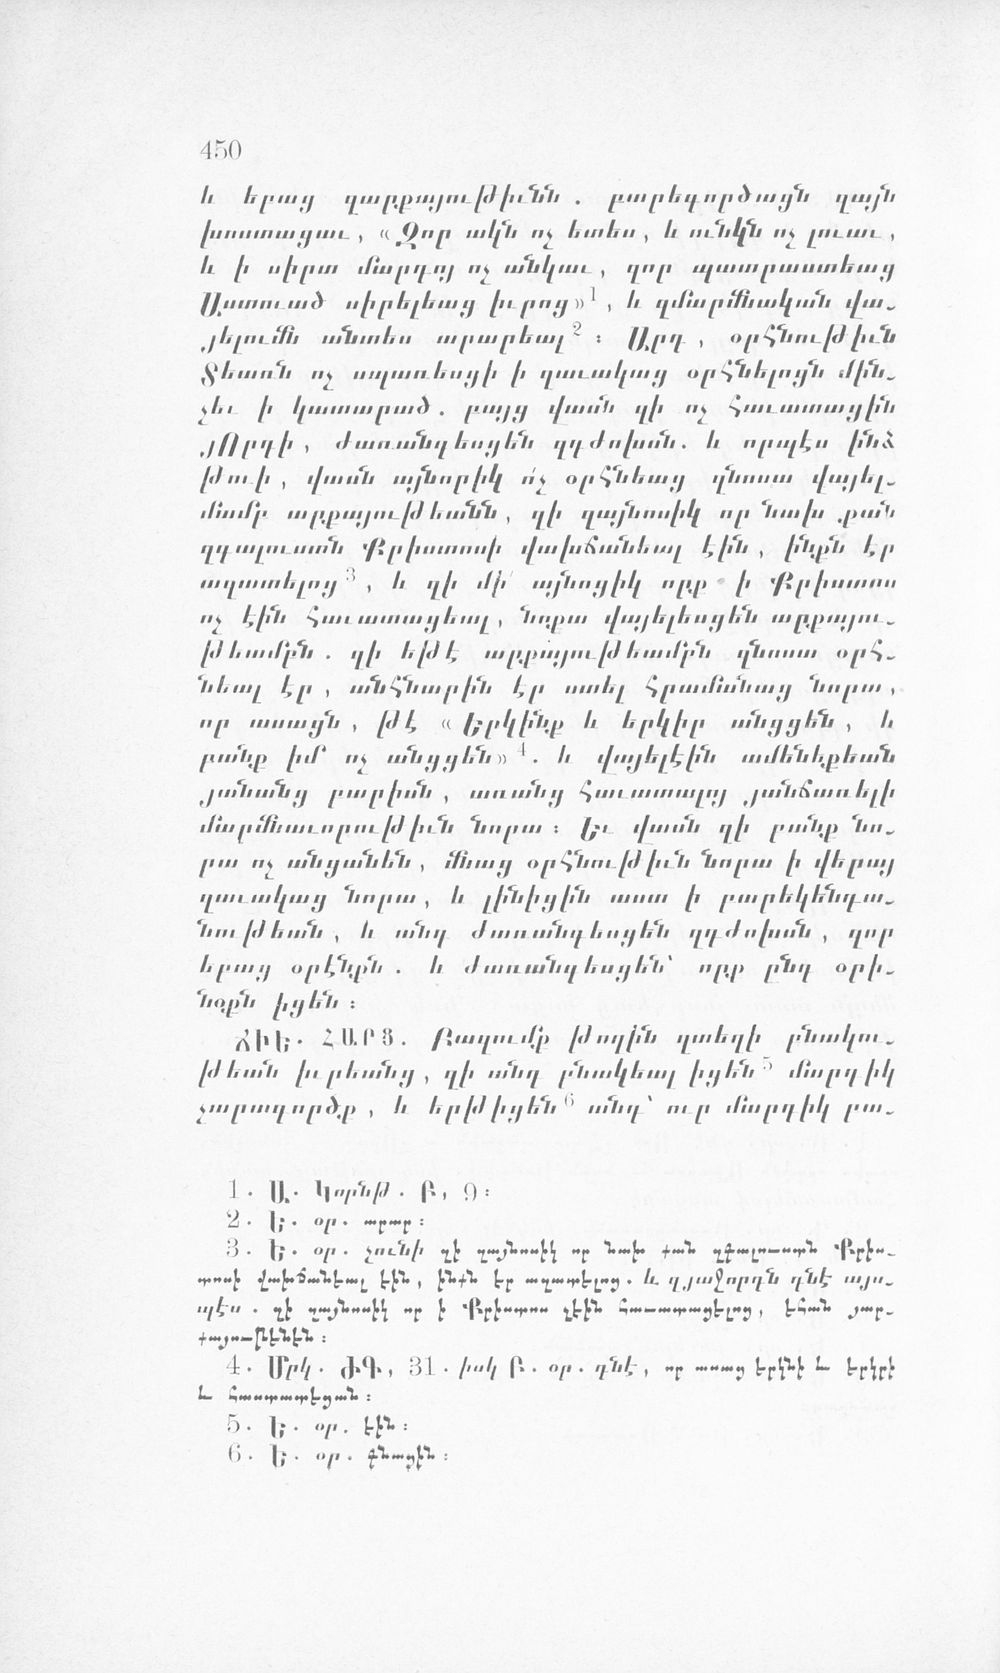 450
և երաց զարքայութիւնն. բարեգործացն զայն
խոստացաւ, «Զոր ակն ոչ ետես, և ունկն ոչ լուաւ,
և ի սիրտ մարդոյ ոչ անկաւ, զոր պատրաստեաց
Աստուած սիրելեաց իւրոց»1, և զմարմնական վա-
յելումն անտես արարեալ2։ Արդ, օրհնութիւն
Տեառն ոչ սպառեսցի ի զաւակաց օրհնելոցն մին-
չեւ ի կատարած. բայց վասն զի ոչ հաւատացին
յՈրդի, ժառանգեսցեն զդժոխսն. և որպէս ինձ
թուի, վասն այնորիկ ո՛չ օրհնեաց զնոսա վայել-
մամբ արքայութեանն, զի զայնոսիկ որ նախ քան
զգալուստն Քրիստոսի վախճանեալ էին, ինքն էր
ազատելոց3, և զի մի՛ այնոցիկ որք ի Քրիստոս
ոչ էին հաւատացեալ, նոքա վայելեսցեն արքայու-
թեամբն. զի եթէ արքայութեամբն զնոսա օրհ-
նեալ էր, անհնարին էր ստել հրամանաց նորա,
որ ասացն, թէ «Երկինք և երկիր անցցեն, և
բանք իմ ոչ անցցեն»4. և վայելէին ամենեքեան
յանանց բարիսն, առանց հաւատալոյ յանճառելի
մարմնաւորութիւն նորա։ Եւ վասն զի բանք նո-
րա ոչ անցանեն, մնաց օրհնութիւն նորա ի վերայ
զաւակաց նորա, և լինիցին աստ ի բարեկենդա-
նութեան, և անդ ժառանգեսցեն զդժոխսն, զոր
երաց օրէնքն. և ժառանգեսցեն՝ որք ընդ օրի-
նօքն իցեն։
ՃԻԵ. ՀԱՐՑ. Բազումք թողին զտեղի բնակու-
թեան իւրեանց, զի անդ բնակեալ իցեն5 մարդիկ
չարագործք, և երթիցեն6 անդ՝ ուր մարդիկ բա-
1. Ա. Կորնթ. Բ, 9։
2. Ե. օր. արար։
3. Ե. օր. չունի զի զայնոսիկ որ նախ քան զգալուստն Քրիս-
տոսի վախճանեալ էին, ինքն էր ազատելոց. և զյաջորդն դնէ այս-
պէս. զի զայնոսիկ որ ի Քրիստոս չէին հաւատացելոց, եհան յար-
քայութենէն։
4. Մրկ. ԺԳ, 31. իսկ Բ. օր. դնէ, որ ասաց երկնի և երկրի
և հաստատեցան։
5. Ե. օր. էին։
6. Ե. օր. գնացին։